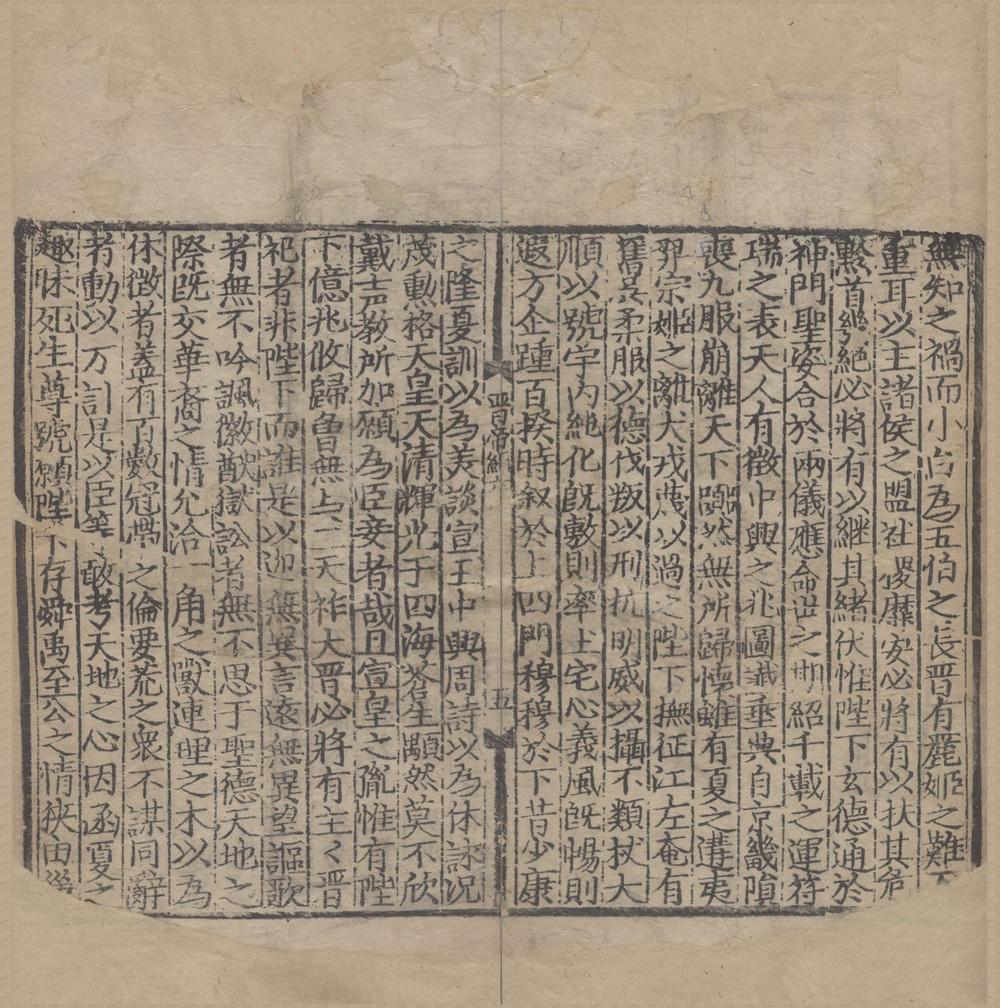 無知之禍而小白為五伯之長晋有麗姬之難
重耳以主諸侯之盟社稷靡安必將有以扶其危
黔首幾絶必將有以継其緒伏惟陛下玄德通於
神門聖姿合於兩儀應命世之期紹千載之運符
瑞之表天人有徴中興之兆圖讖垂典自京畿隕
喪九服崩離天下囂然無所歸懷雖有夏之遘夷
羿宗姬之離犬戎蔑以過之陛下撫征江左奄有
舊吴柔服以德伐叛以刑抗明威以攝不類杖大
順以號宇内純化旣敷則率土宅心義風旣暢則
遐方企踵百揆時叙於上四門穆穆於下昔少康
晋帝紀六
五
之隆夏訓以為美談宣王中興周詩以為休詠況
茂勲格天皇天清輝光于四海蒼生顒然莫不欣
戴声教所加願為臣妾者哉且宣皇之胤惟有陛
下億兆攸歸曾無与二天祚大晋必將有主〻晋
祀者非陛下而誰是以迩無異言遠無異望謳歌
者無不吟諷徽猷獄訟者無不思于聖德天地之
際旣交華裔之情允洽一角之獸連理之木以為
休徴者盖有百數冠帶之倫要荒之衆不謀同辭
者動以万計是以臣等敢考天地之心因函夏之
趣昧死上尊號願陛下存舜禹至公之情狹由巢